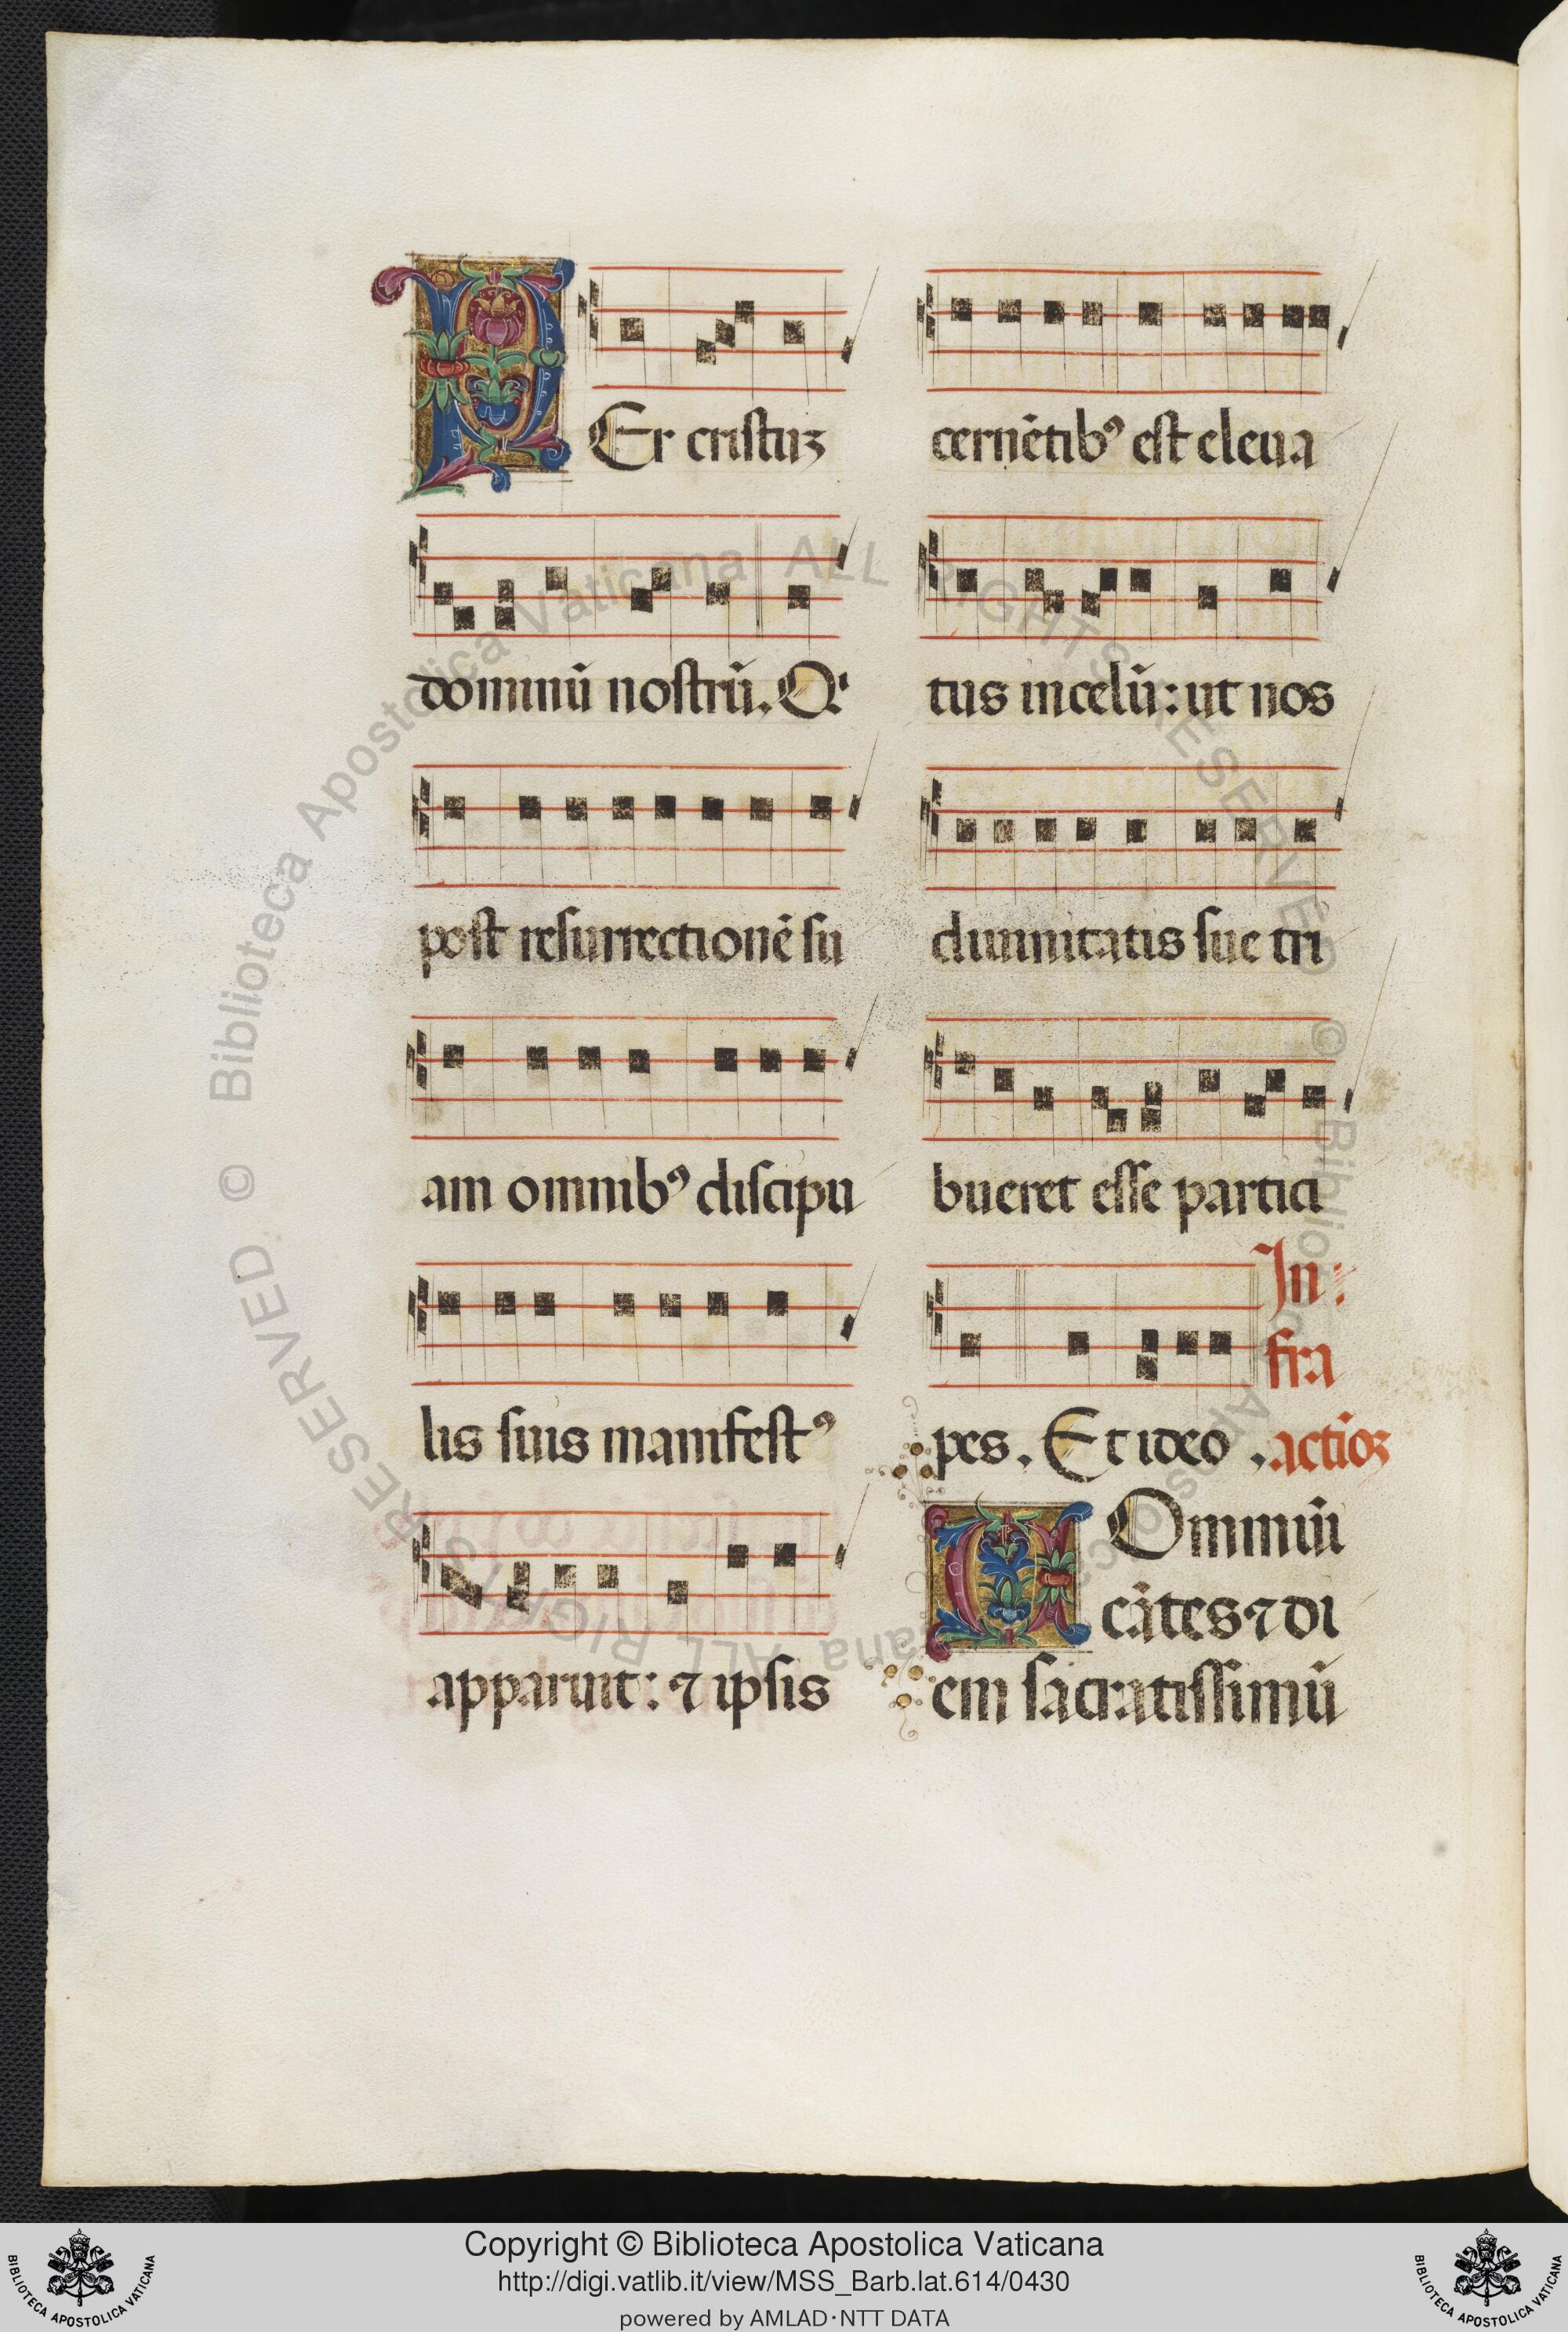 PEr cristuꝫ
dominū nostrū. Qⁱ
post resurrectionē su
am omnibꝰ discipu
lis suis manifestꝰ
apparuit: ⁊ ipsis
cernētibꝰ est eleua
tus in celū: ut nos
diuinitatis sue tri
bueret esse partici
pes. Et ideo.
In
fra
actioꝫ
COmmūi
cātes ⁊ di
em sacratissimū
© Biblioteca Apostolica Vaticana ALL RIGHTS RESERVED
Copyright © Biblioteca Apostolica Vaticana
http://digi.vatlib.it/view/MSS_Barb.lat.614/0430
powered by AMLAD·NTT DATA
BIBLIOTECA APOSTOLICA VATICANA
BIBLIOTECA APOSTOLICA VATICANA